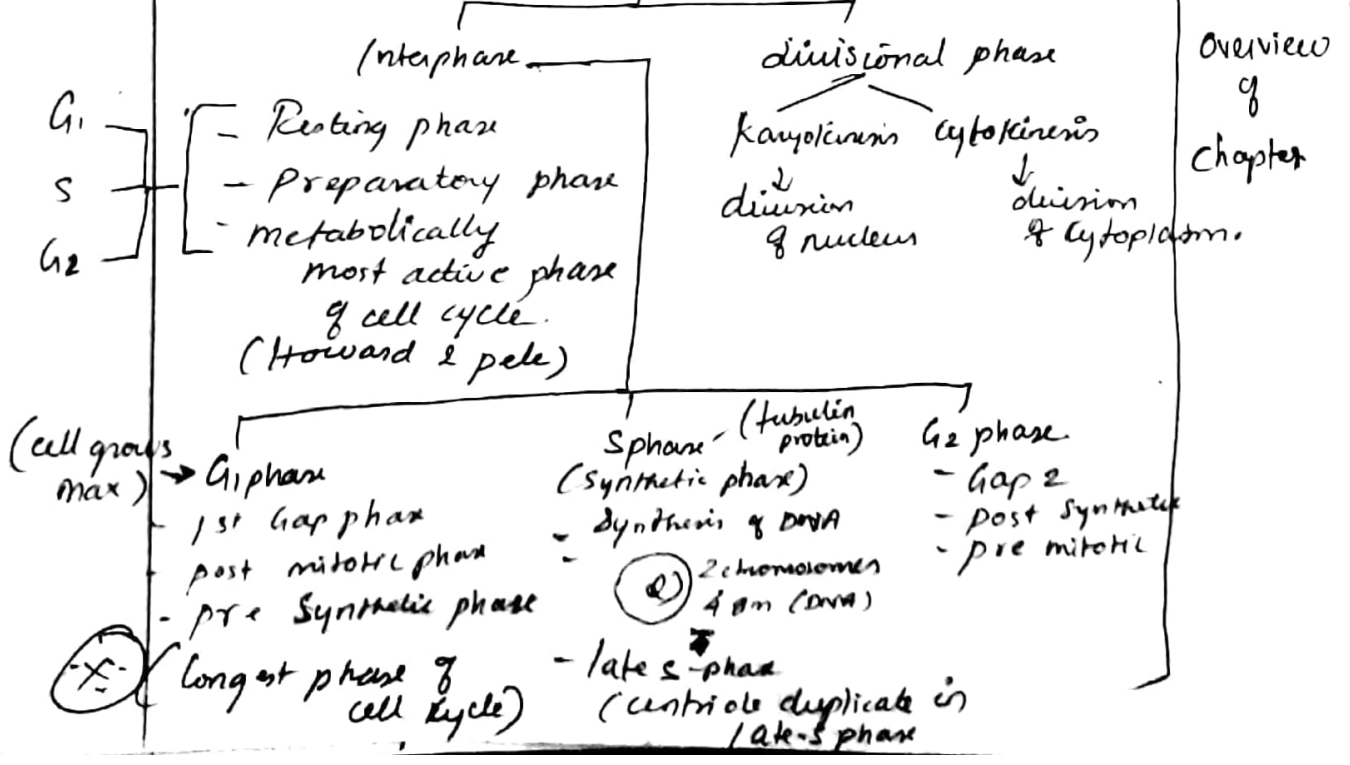 Interphase
divisional phase
Overview
of
Chapter
G1
S
G2
- Resting phase
- Preparatory phase
- metabolically
most active phase
of cell cycle.
(Howard & pele)
Karyokinesis
↓
division
of nucleus
Cytokinesis
↓
division
of Cytoplasm.
(cell grows
max) → G1 phase
- 1st Gap phase
- post mitotic phase
- pre Synthetic phase
(Longest phase of
cell cycle)
S phase - (tubulin
protein)
(Synthetic phase)
- Synthesis of DNA
-
2 chromosomes
(DNA)
- late S-phase
(centriole duplicate in
late-S phase
G2 phase.
- Gap 2
- post Synthetic
- pre mitotic